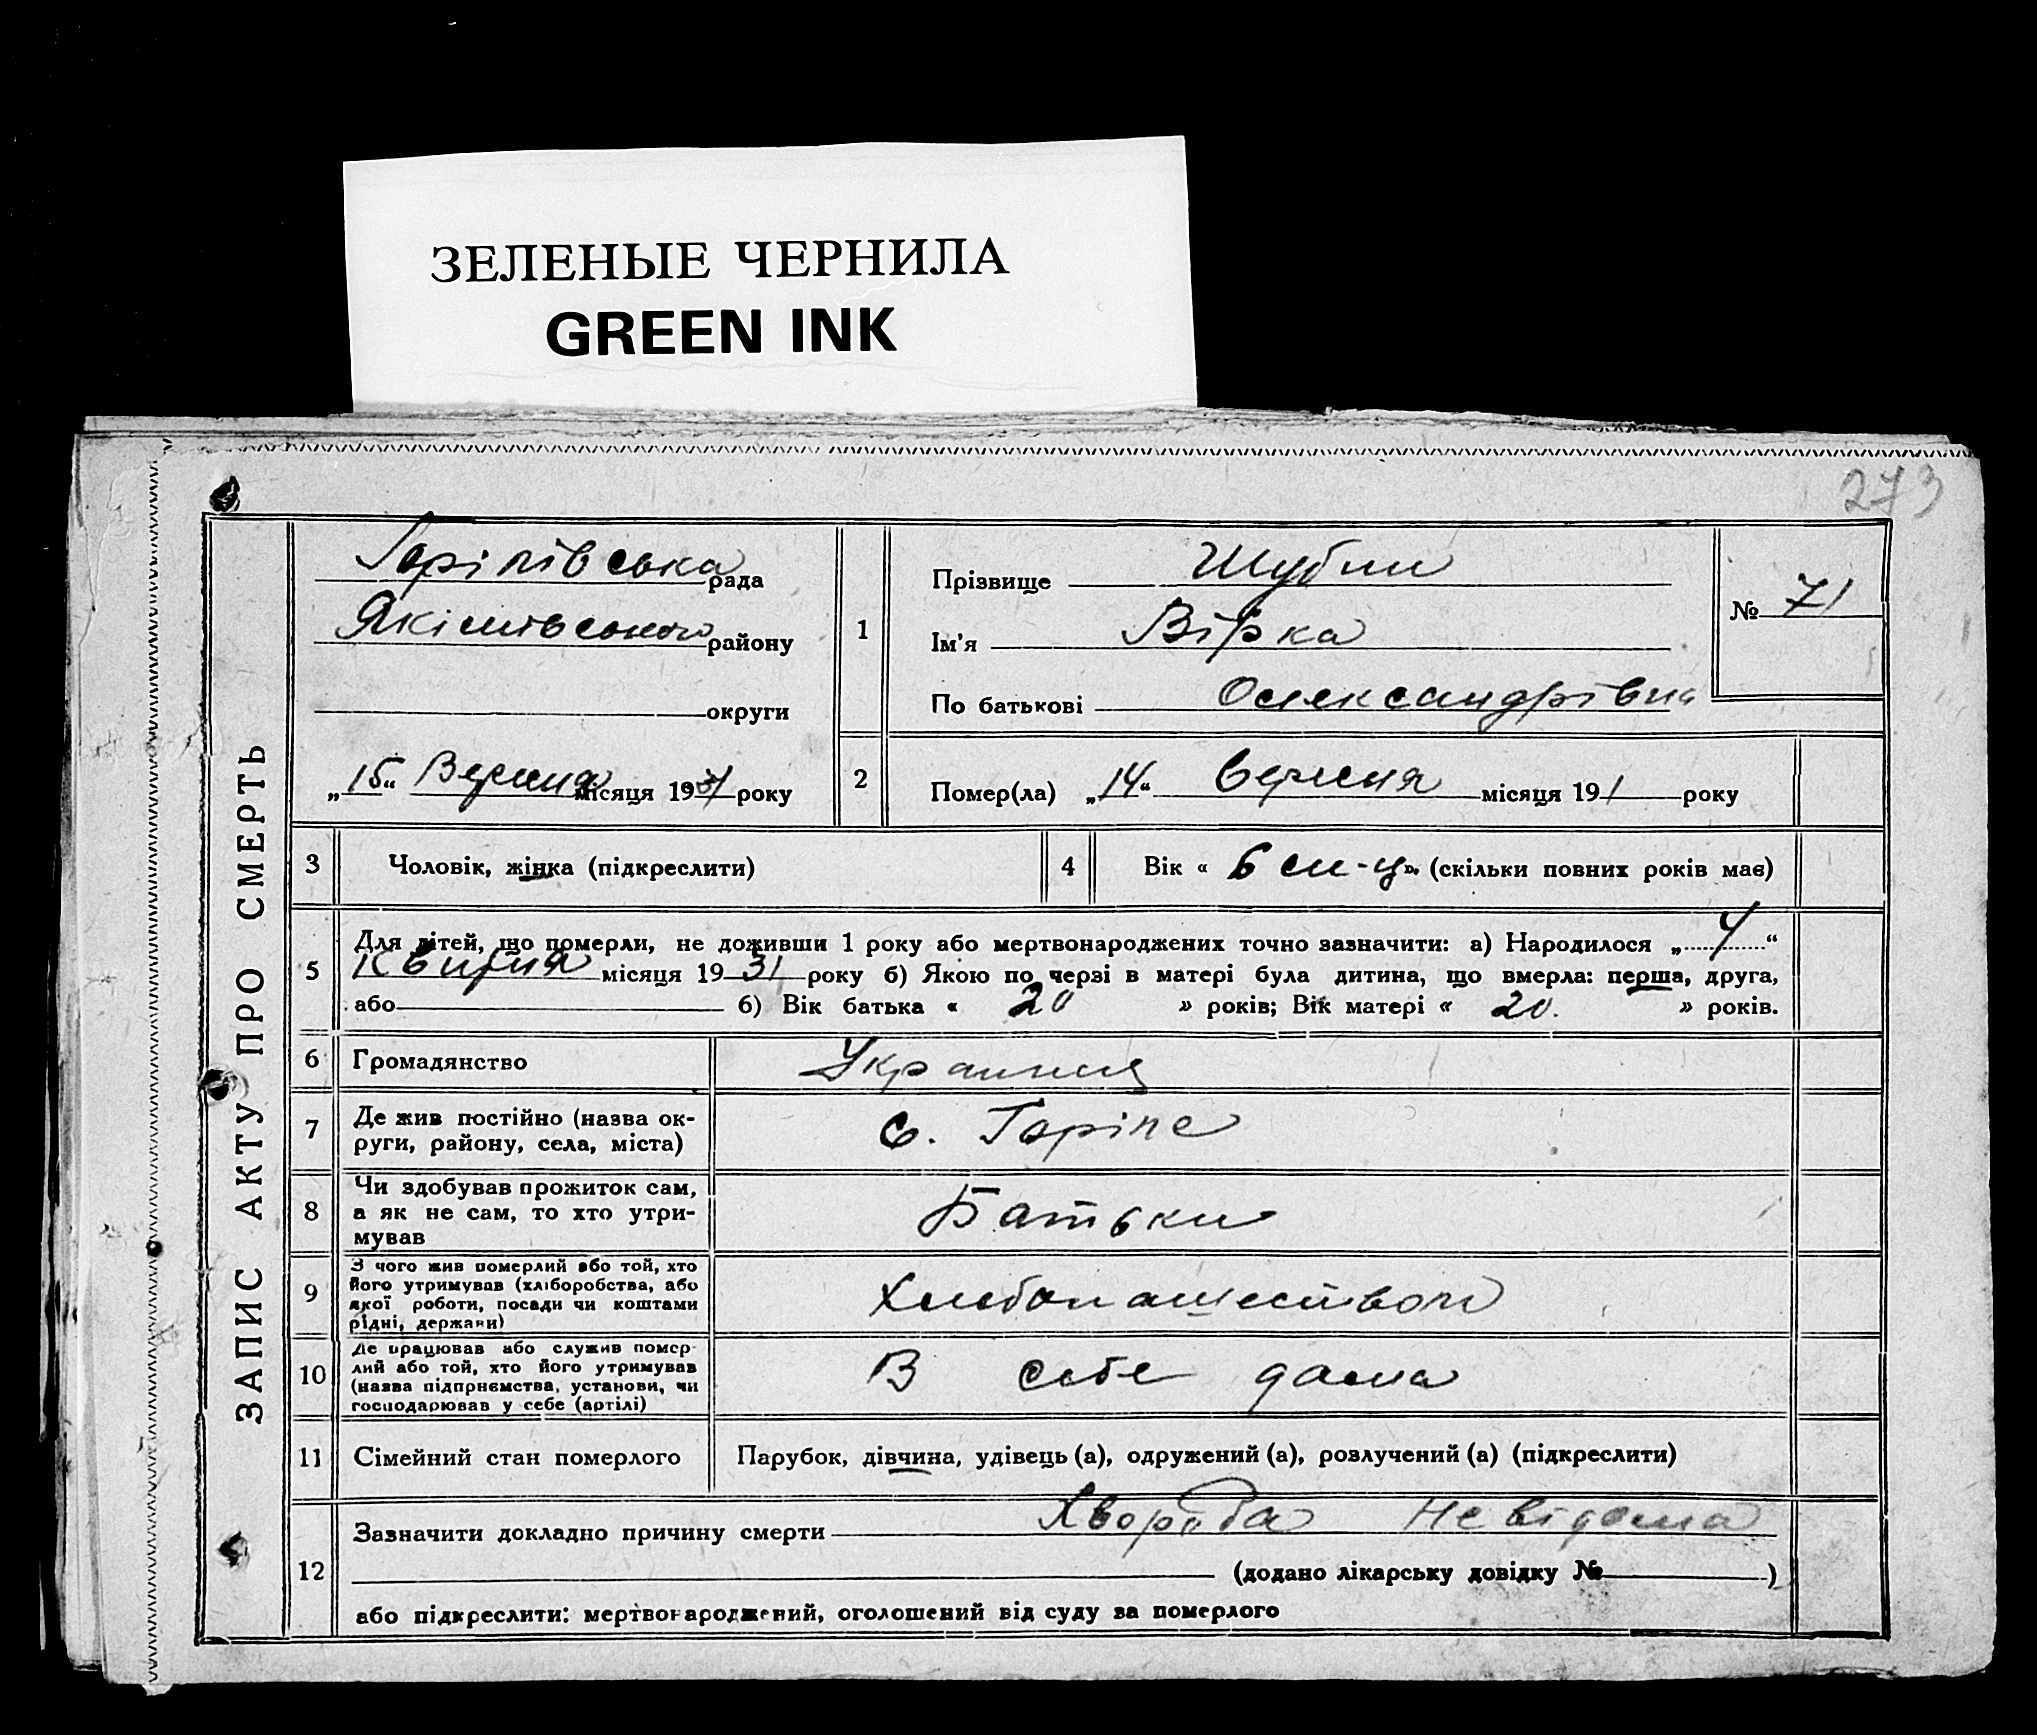 ЗЕЛЕНЫЕ ЧЕРНИЛА
GREEN INK
273
ЗАПИС АКТУ ПРО СМЕРТЬ
Горіпівська рада
Якімівського району
округи
„15“ Вересня місяця 1931 року
1
Прізвище Шубин
Ім'я Вірка
По батькові Олександрівна
№ 71
2
Помер(ла) „14“ вересня місяця 191 року
3
Чоловік, жінка (підкреслити)
4
Вік « 6 м-ц». (скільки повних років має)
5
Для дітей, що померли, не доживши 1 року або мертвонароджених точно зазначити: а) Народилося „4“
Квитня місяця 1931 року б) Якою по черзі в матері була дитина, що вмерла: перша, друга,
або 6) Вік батька « 20 » років; Вік матері « 20. » років.
6
Громадянство
7
Де жив постійно (назва ок-
руги, району, села, міста)
с. Горіпе
8
Чи здобував прожиток сам,
а як не сам, то хто утри-
мував
Батьки
9
З чого жив померлий або той, хто
його утримував (хліборобства, або
якої роботи, посади чи коштами
рідні, держави)
Хлебопашеством
10
Де працював або служив помер-
лий або той, хто його утримував
(назва підприємства, установи, чи
господарював у себе (артілі)
В себе дома
11
Сімейний стан померлого
Парубок, дівчина, удівець (а), одружений (а), розлучений (а) (підкреслити)
12
Зазначити докладно причину смерти Хвороба невідома
(додано лікарську довідку № )
або підкреслити: мертвонароджений, оголошений від суду за померлого